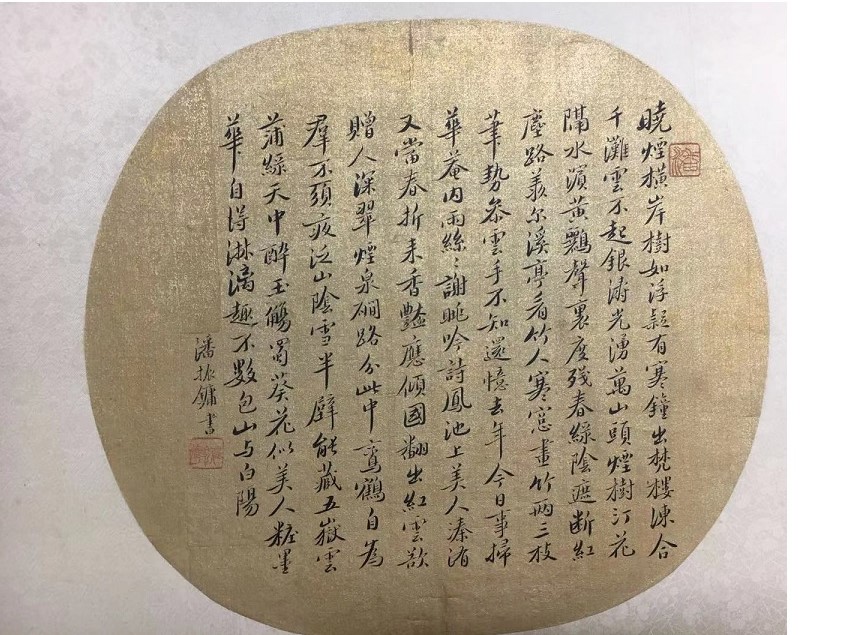 曉煙橫岸樹如浮疑有寒鐘出梵樓凍合
千灘雲不起銀濤光湧萬山頭煙樹汀花
隔水濱黃鸝聲裏度殘春綠陰遮断紅
塵路羨尔溪亭看竹人寒窓畫竹兩三枝
筆勢參雲手不知還憶去年今日事掃
華菴内雨絲〻謝眺吟詩鳳池上美人溱洧
又當春折来香豔應傾國翻出紅雲欲
贈人深翠煙泉磵路分此中鸞鶴自為
羣不須夜泛山陰雪半壁能藏五嶽雲
蒲綠天中醉玉觴蜀葵花似美人粧墨
華自得淋漓趣不數包山与白陽
潘振鏞書
潘